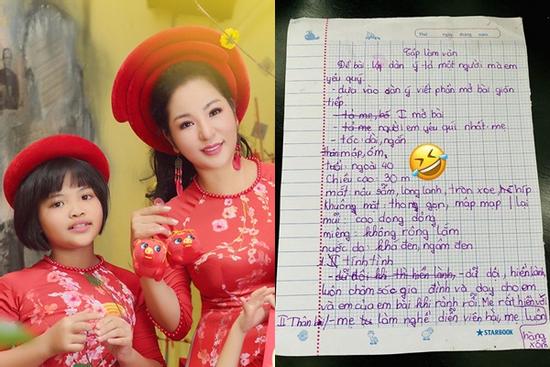 Thứ ngày tháng năm
Tập làm văn
Đề bài: Lập dàn ý tả một người mà em
yêu quý.
- dựa vào dàn ý viết phần mở bài gián
tiếp.
- tả mẹ, bố I mở bài
- tả mẹ người em yêu quí nhất: mẹ
- tóc: dài, ngắn
mập, ốm,
tuổi: ngoài 40
Chiều cao: 30 m
mắt: nâu sẫm, long lanh, tròn xoe híp
Khuông mặt: thang gọn, mập map lại
mũi: cao dong dỏng
miệng: không rộng lắm
nước da: khá đen, ngăm đen
II tính tình
- dễ dãi, hiền lành,
luôn chăm sóc gia đình và dạy cho em
và em của em bài khi rảnh rỗi. Mẹ rất hiền với
II Thân bài - mẹ làm nghề diễn viên hài, mẹ luôn
hàng
xóm
STARBOOK